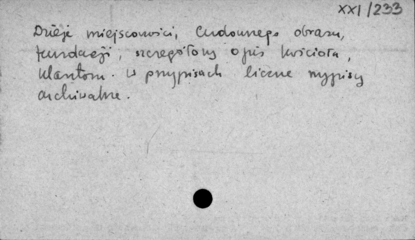 XXI/233
Dzieje miejscowości, cudownego obrazu,
fundacji, szczegółowy opis kościoła,
klasztoru. W przypisach liczne wypisy
archiwalne.